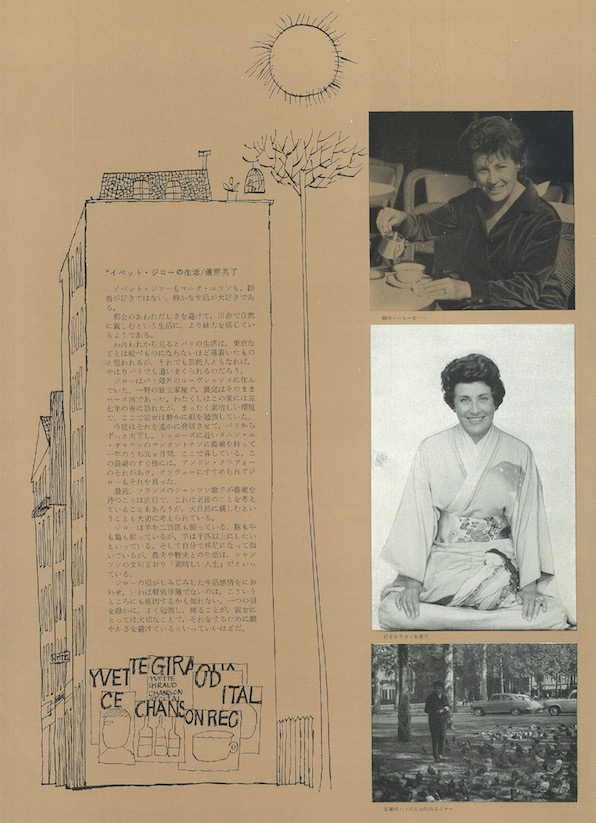 *イベット・ジローの生活/蘆原英了
イベット・ジローもマルク・エランも、騒
音がすきではない。静かな生活が大好きであ
る。
都会のあわただしさを避けて、田舎で自然
に親しむという生活に、より魅力を感じてい
るようである。
われわれから見るとパリの生活は、東京な
どとは較べものにならないほど落着いたもの
と思われるが、それでも芸能人ともなれば、
やはりパリでも追いまくられるのだろう。
ジローはパリ郊外の
でいた。一軒の独立家屋で、裏庭はそのまま
セーヌ河であった。わたくしはこの家には五
七年の春に訪れたが、まったく素晴しい環境
で、ここで彼女は静かに唄を勉強していた。
今度はそれを遥かに発展させて、パリから
ずっと南下し、トゥルーズに近い
農場を持って
一年のうち五ヵ月間、ここで暮している。こ
の農場のすぐ傍には、アンドレ・クラヴォー
のそれがあり、クラヴォーにすすめられてジ
ローもそれを買った。
最近、フランスのシャンソン歌手が農場を
持つことは流行で、これは老後のことを考え
ていることもあろうが、大自然に親しむとい
うことも大切に考えられている。
ジローは羊を二百匹も飼っている。豚も牛
も鶏も飼っているが、羊は千匹以上にしたい
といっている。そして自分で裸足になって働
いているが、農夫や牧夫との生活は、シャン
ソンの文句どおり「素晴しい人生」だといっ
ている。
ジローの唄がしみじみした生活感情をにお
わせ、いわば軽佻浮薄でないのは、こういう
ところにも原因するかも知れない。一つの唄
を静かに、よく勉強し、練ることが、彼女に
とっては大切なことで、それをするために賑
やかさを避けているといっていいほどだ。
HOTEL
YVETTE GIRAUD
YVETTE
GIRAUD
CHANSON
RECITAL
CE
CHANSON RECITAL
朝のコーヒーを……
好きなキモノを着て
広場のハトにかこまれるジロー